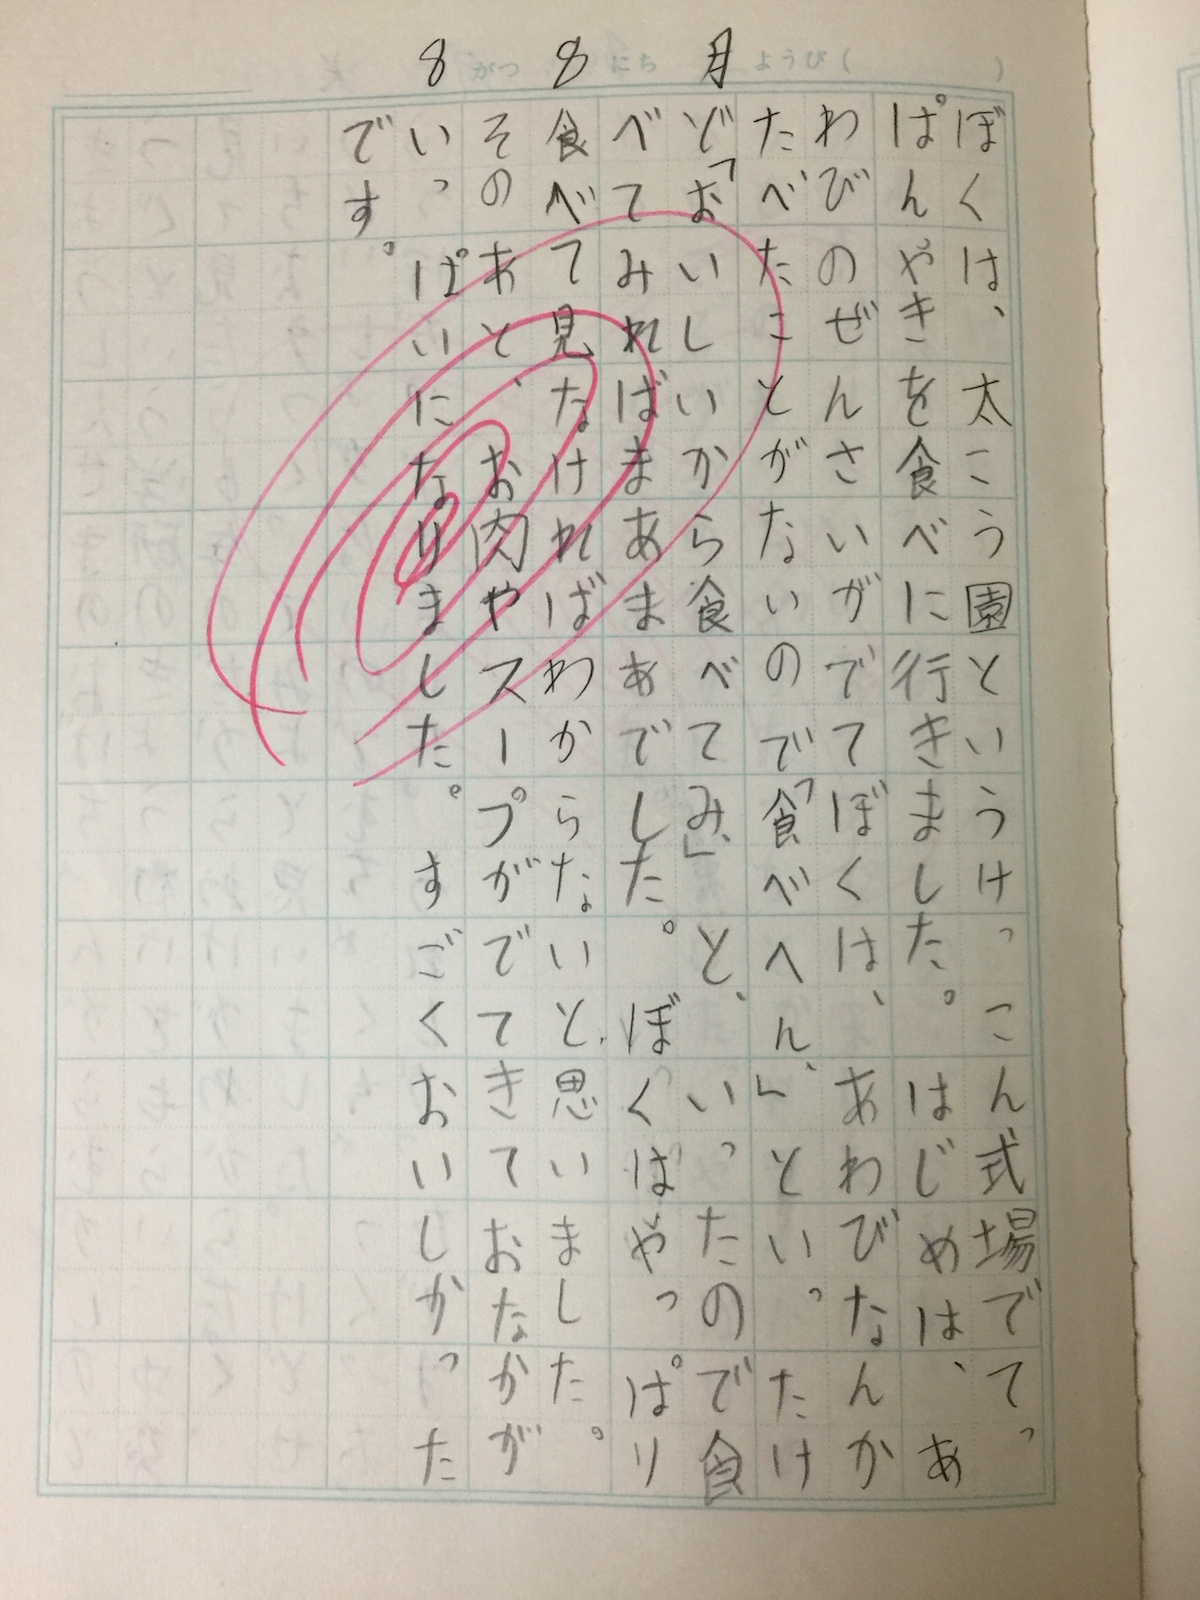 8がつ8にち月ようび( )
ぼくは、太こう園というけっこん式場でてっ
ぱんやきを食べに行きました。はじめは、あ
わびのぜんさいがでてぼくは、あわびなんか
たべたことがないので「食べへん、」といったけ
ど「おいしいから食べてみ、」と、いったので食
べてみればまあまあでした。ぼくはやっぱり
食べて見なければわからないと、思いました。
そのあと、お肉やスープがでてきておなかが
いっぱいになりました。すごくおいしかった
です。